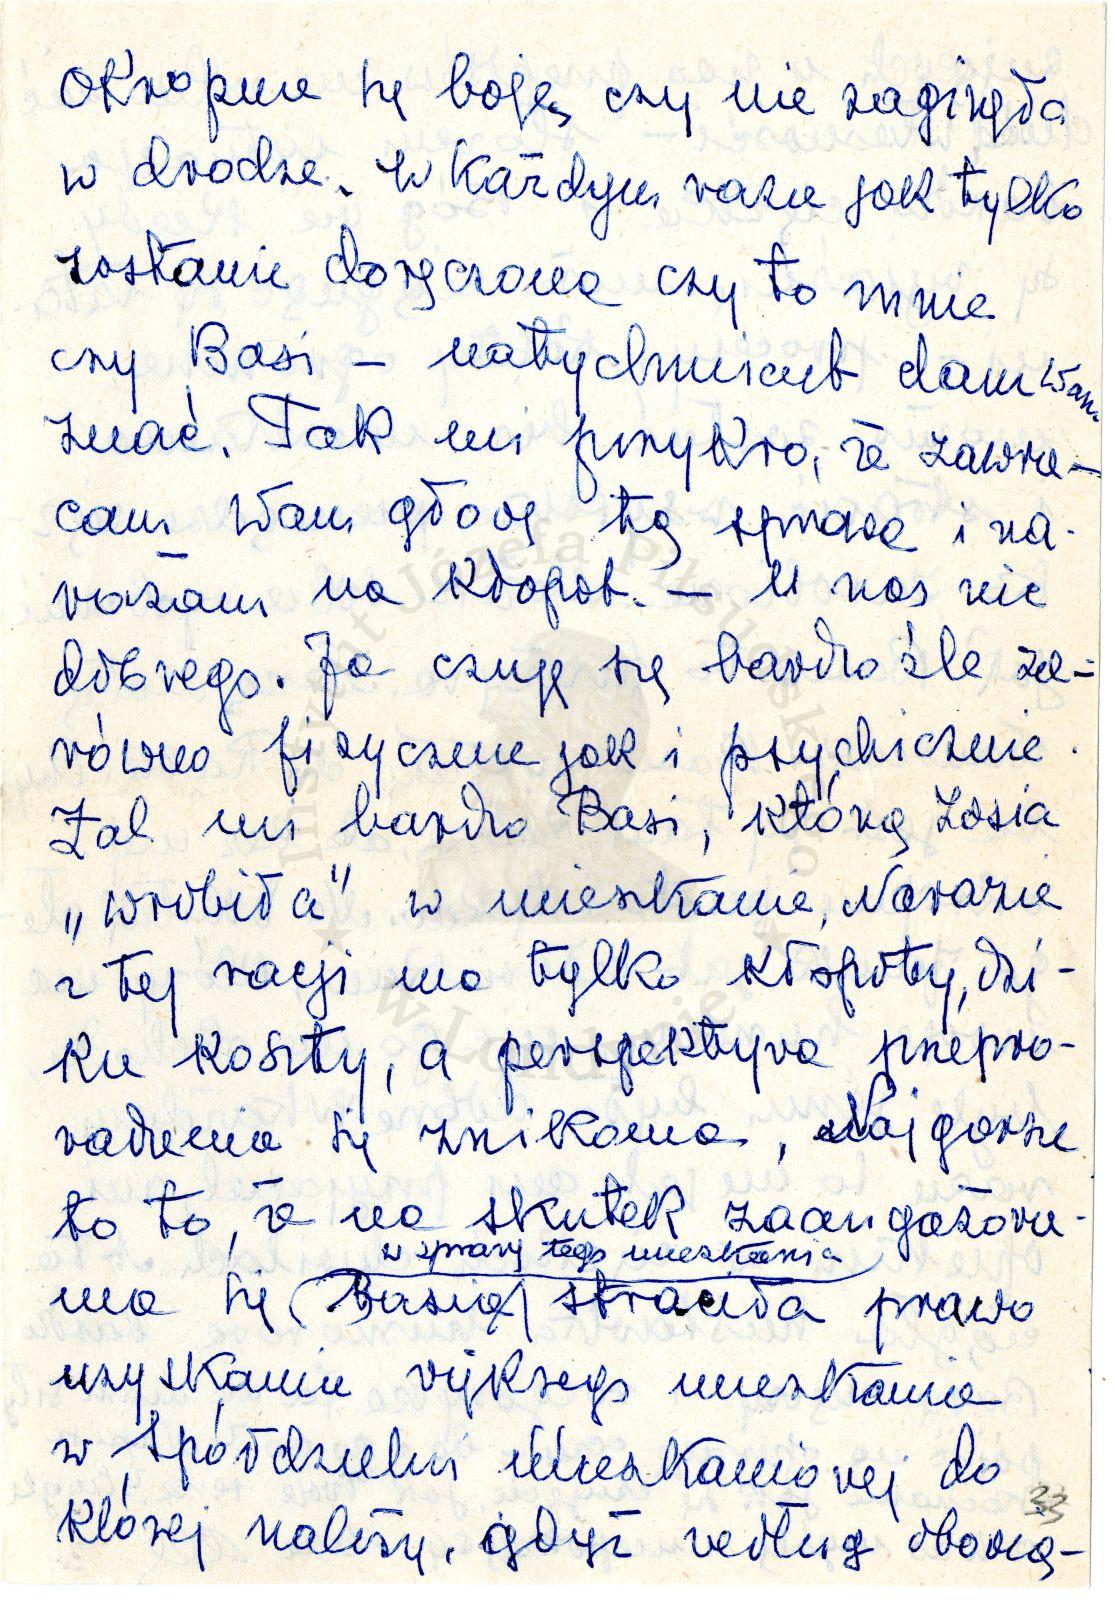 Okropnie się boję, czy nie zaginęła
w drodze. W każdym razie jak tylko
zostanie doręczona czy to mnie
czy Basi – natychmiast dam Wam
znać. Tak mi przykro, że zawra-
cam Wam głowę tą sprawą i na-
rażam na kłopot. – U nas nic
dobrego. Ja czuję się bardzo źle za-
równo fizycznie jak i psychicznie.
Żal mi bardzo Basi, którą Zosia
„wrobiła" w mieszkanie. Narazie
z tej racji ma tylko kłopoty, dzi-
kie koszty, a perspektywa przepro-
wadzenia się znikoma, Najgorsze
to to, że na skutek zaangażowa-
w sprawy tego mieszkania
nia się (Basia) straciła prawo
uzyskania większego mieszkania
w Spółdzielni Mieszkaniowej do
której należy, gdyż według obowią-
33
Instytut Józefa Piłsudskiego
w Londynie